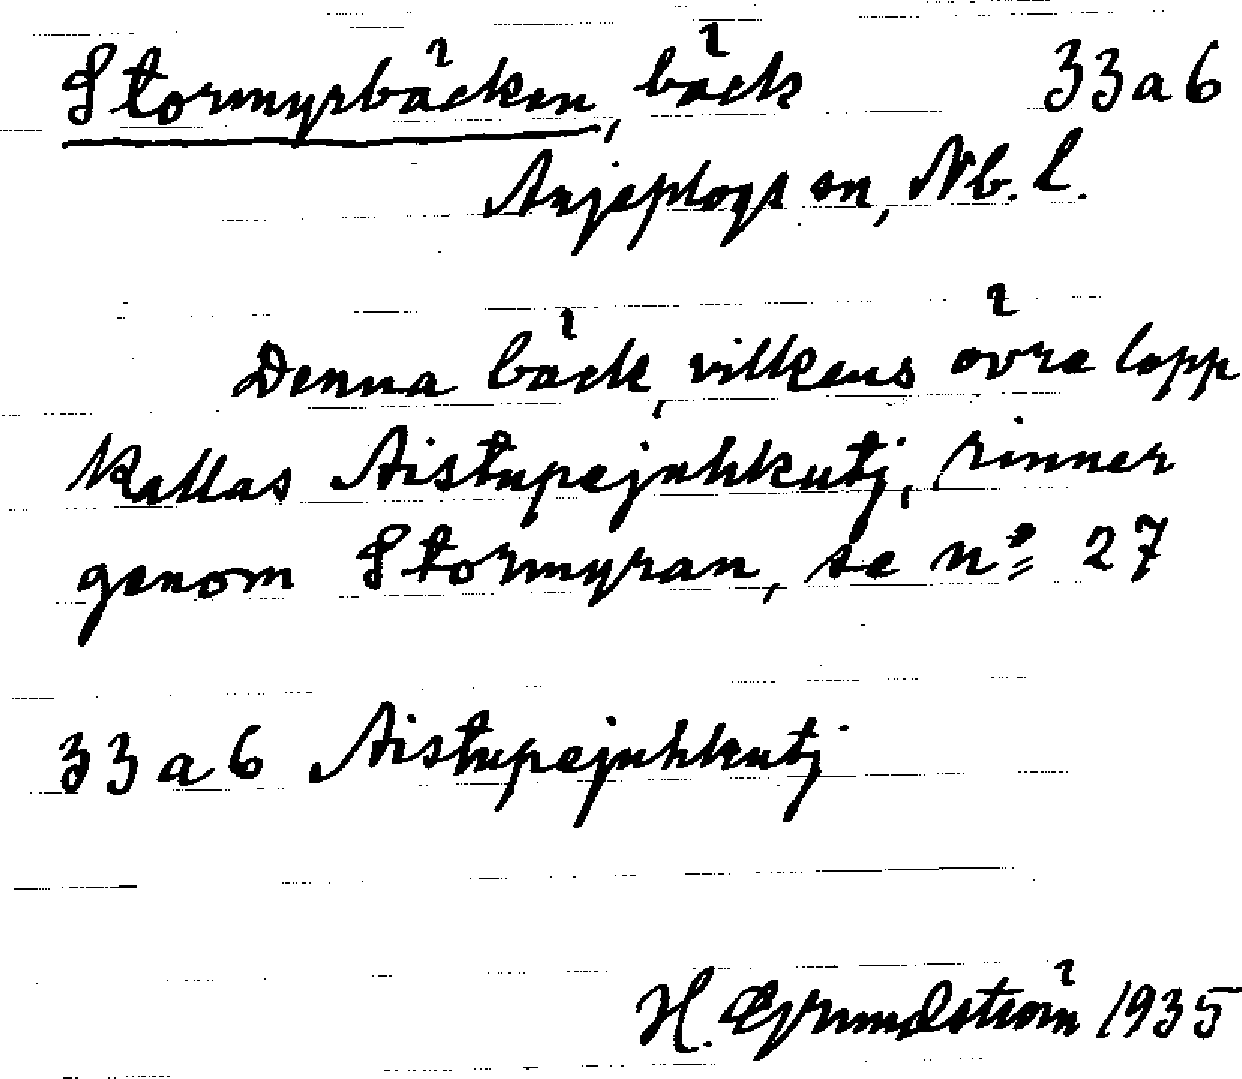 Stormyrbäcken, bäck 33a6
Arjeplogs sn, Nb. l.
Denna bäck, vilkens övre lopp
kallas Aistupejuhkutj, rinner
genom Stormyran, se nº 27
33a6 Aistupejuhkutj
H. Grundström 1935